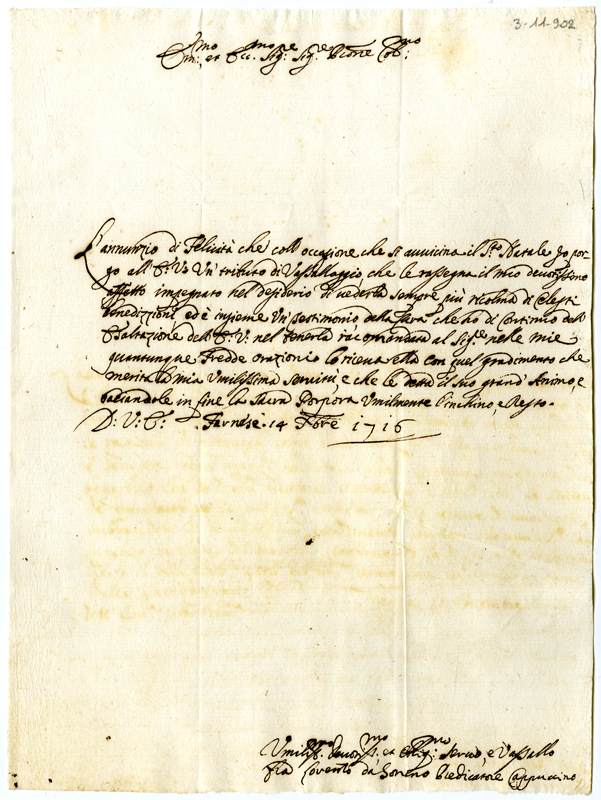 3-11-902
Em:mo et Ecc:mo Sig:re Sig:re Prone Col:mo
L'annunzio di Felicità che coll'occasione che si auuicina il S:to Natale Io por-
go all'E: V: è Un' tributo di Vassallaggio che le rassegna il mio deuotissimo
affetto impegnato nel desiderio di uederla sempre più ricolma di Celesti
benedizioni, ed è insieme Un' testimonio della che hò di Continuo dell'
Esaltazione dell' E: V: nel tenerla racomandata al Sig:re nelle mie
quantunque Fredde orazioni la riceua ella con quel gradimento che
merita la mia Vmilissima seruitù e che le il suo grand' Animo, e
baciandole in fine la Sacra Porpora Vmilmente l'inchino, e Resto.
D: V: E: Farnese. 14 Xbre 1716
Vmiliss:mo Deuotiss:mo et Oblig:mo Seruo, e Vassallo
Fra da Predicatore Cappuccino